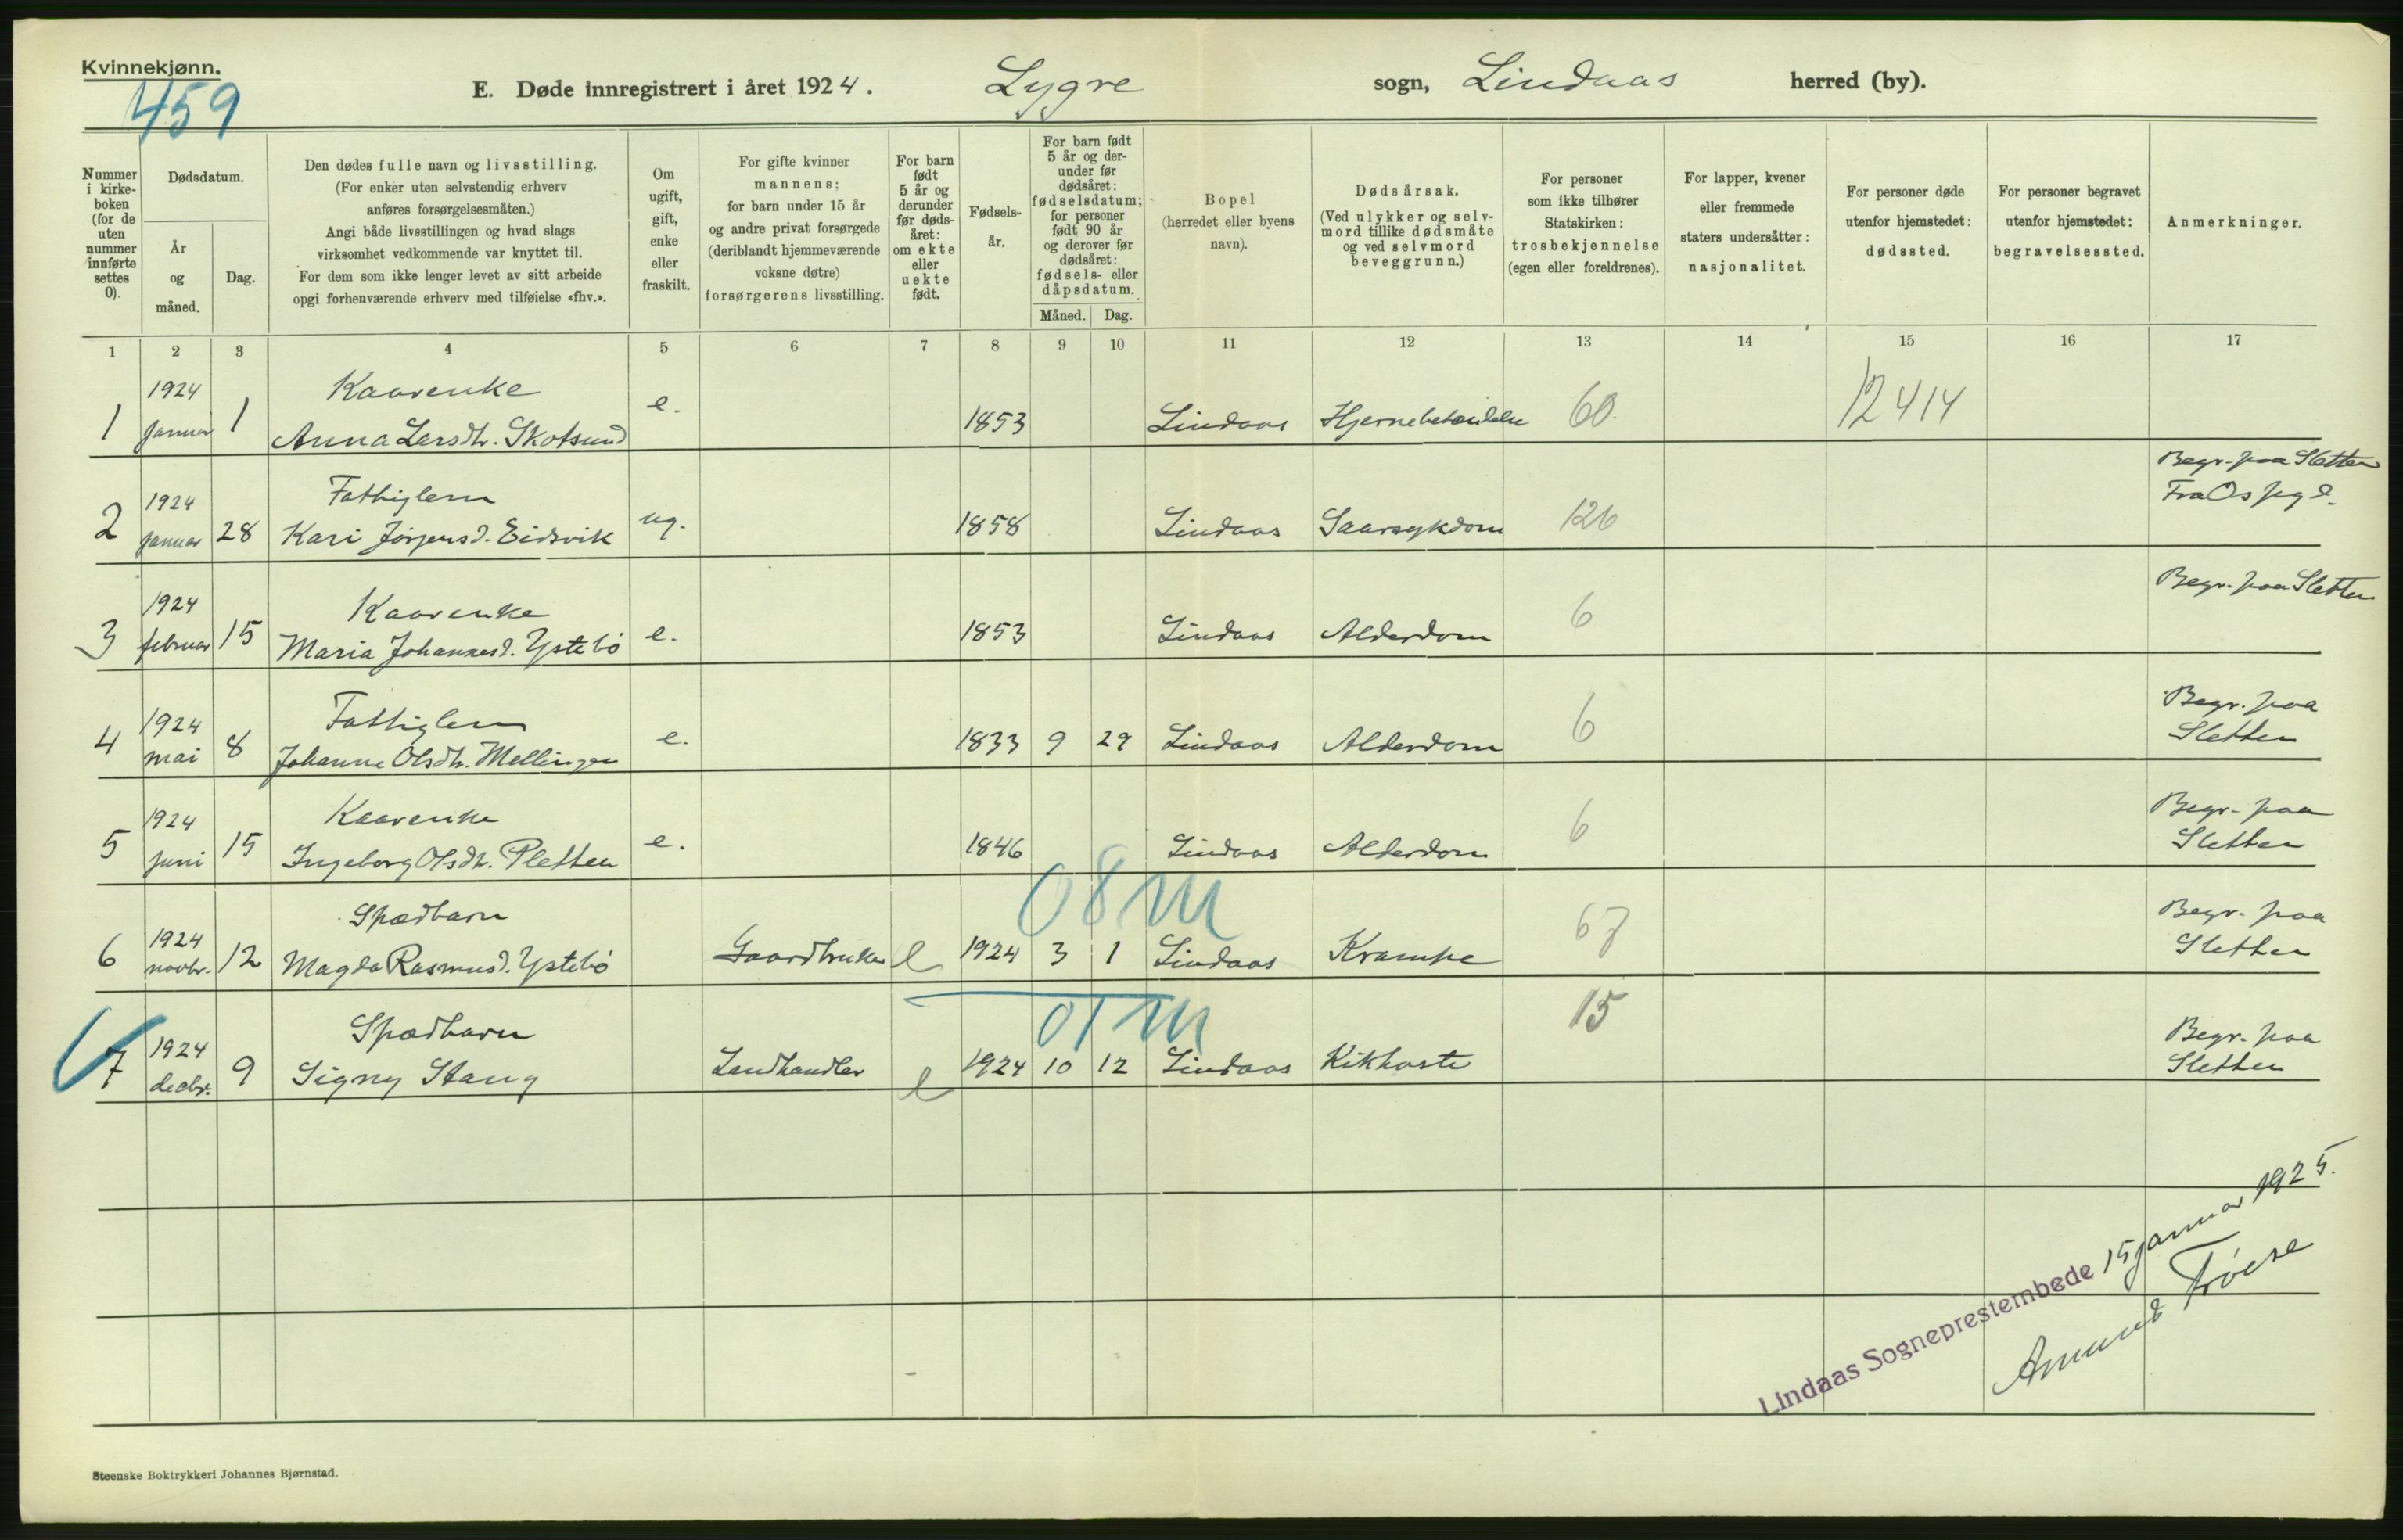 Kvinnekjønn.
459
E. Døde innregistrert i året 1924. Lygre sogn, Lindaas herred (by).
Nummer i kirkeboken (for de uten nummer innførte settes 0).
Dødsdatum.
År og måned.
Dag.
Den dødes fulle navn og livsstilling.
(For enker uten selvstendig erhverv
anføres forsørgelsesmåten.)
Angi både livsstillingen og hvad slags
virksomhet vedkommende var knyttet til.
For dem som ikke lenger levet av sitt arbeide
opgi forhenværende erhverv med tilføielse «fhv.».
Om ugift, gift, enke eller fraskilt.
For gifte kvinner
mannens;
for barn under 15 år
og andre privat forsørgede
(deriblandt hjemmeværende
voksne døtre)
forsørgerens livsstilling.
For barn født 5 år og derunder før dødsåret: om ekte eller uekte født.
Fødselsår.
For barn født 5 år og derunder før dødsåret: fødselsdatum; for personer født 90 år og derover før dødsåret: fødsels- eller dåpsdatum.
Måned. Dag.
Bopel
(herredet eller byens
navn).
Dødsårsak.
(Ved ulykker og selvmord tillike dødsmåte
og ved selvmord
beveggrunn.)
For personer
som ikke tilhører
Statskirken:
trosbekjennelse
(egen eller foreldrenes).
For lapper, kvener
eller fremmede
staters undersåtter:
nasjonalitet.
For personer døde
utenfor hjemstedet:
dødssted.
For personer begravet
utenfor hjemstedet:
begravelsessted.
Anmerkninger.
1 2 3 4 5 6 7 8 9 10 11 12 13 14 15 16 17
1924 Kaarenke
1 januar 1 Anna Larsdtr. Skotsund e. 1853 Lindaas Hjernebetændelse 60. 12414
1924 Fattiglem Begr. paa Sletten
2 januar 28 Kari Jørgensd. Eidsvik ug. 1858 Lindaas Saarsykdom 126 Fra Os
1924 Kaarenke Begr. paa Sletten
3 februar 15 Maria Johannesd. Ystebø e. 1853 Lindaas Alderdom 6
1924 Fattiglem Begr. paa
4 mai 8 Johanne Olsdtr. Mellingen e. 1833 9 29 Lindaas Alderdom 6 Sletten
1924 Kaarenke Begr. paa
5 juni 15 Ingeborg Olsdtr. Pletten e. 1846 Lindaas Alderdom 6 Sletten
08 m
1924 Spædbarn Begr. paa
6 novbr. 12 Magda Rasmusd. Ystebø Gaardbruker e 1924 3 1 Lindaas Krampe 67 Sletten
01 m
1924 Spædbarn 15 Begr. paa
7 decbr. 9 Signy Stang Landhandler e 1924 10 12 Lindaas Kikhoste Sletten
Lindaas Sogneprestembede 15 januar 1925.
Steenske Boktrykkeri Johannes Bjørnstad.